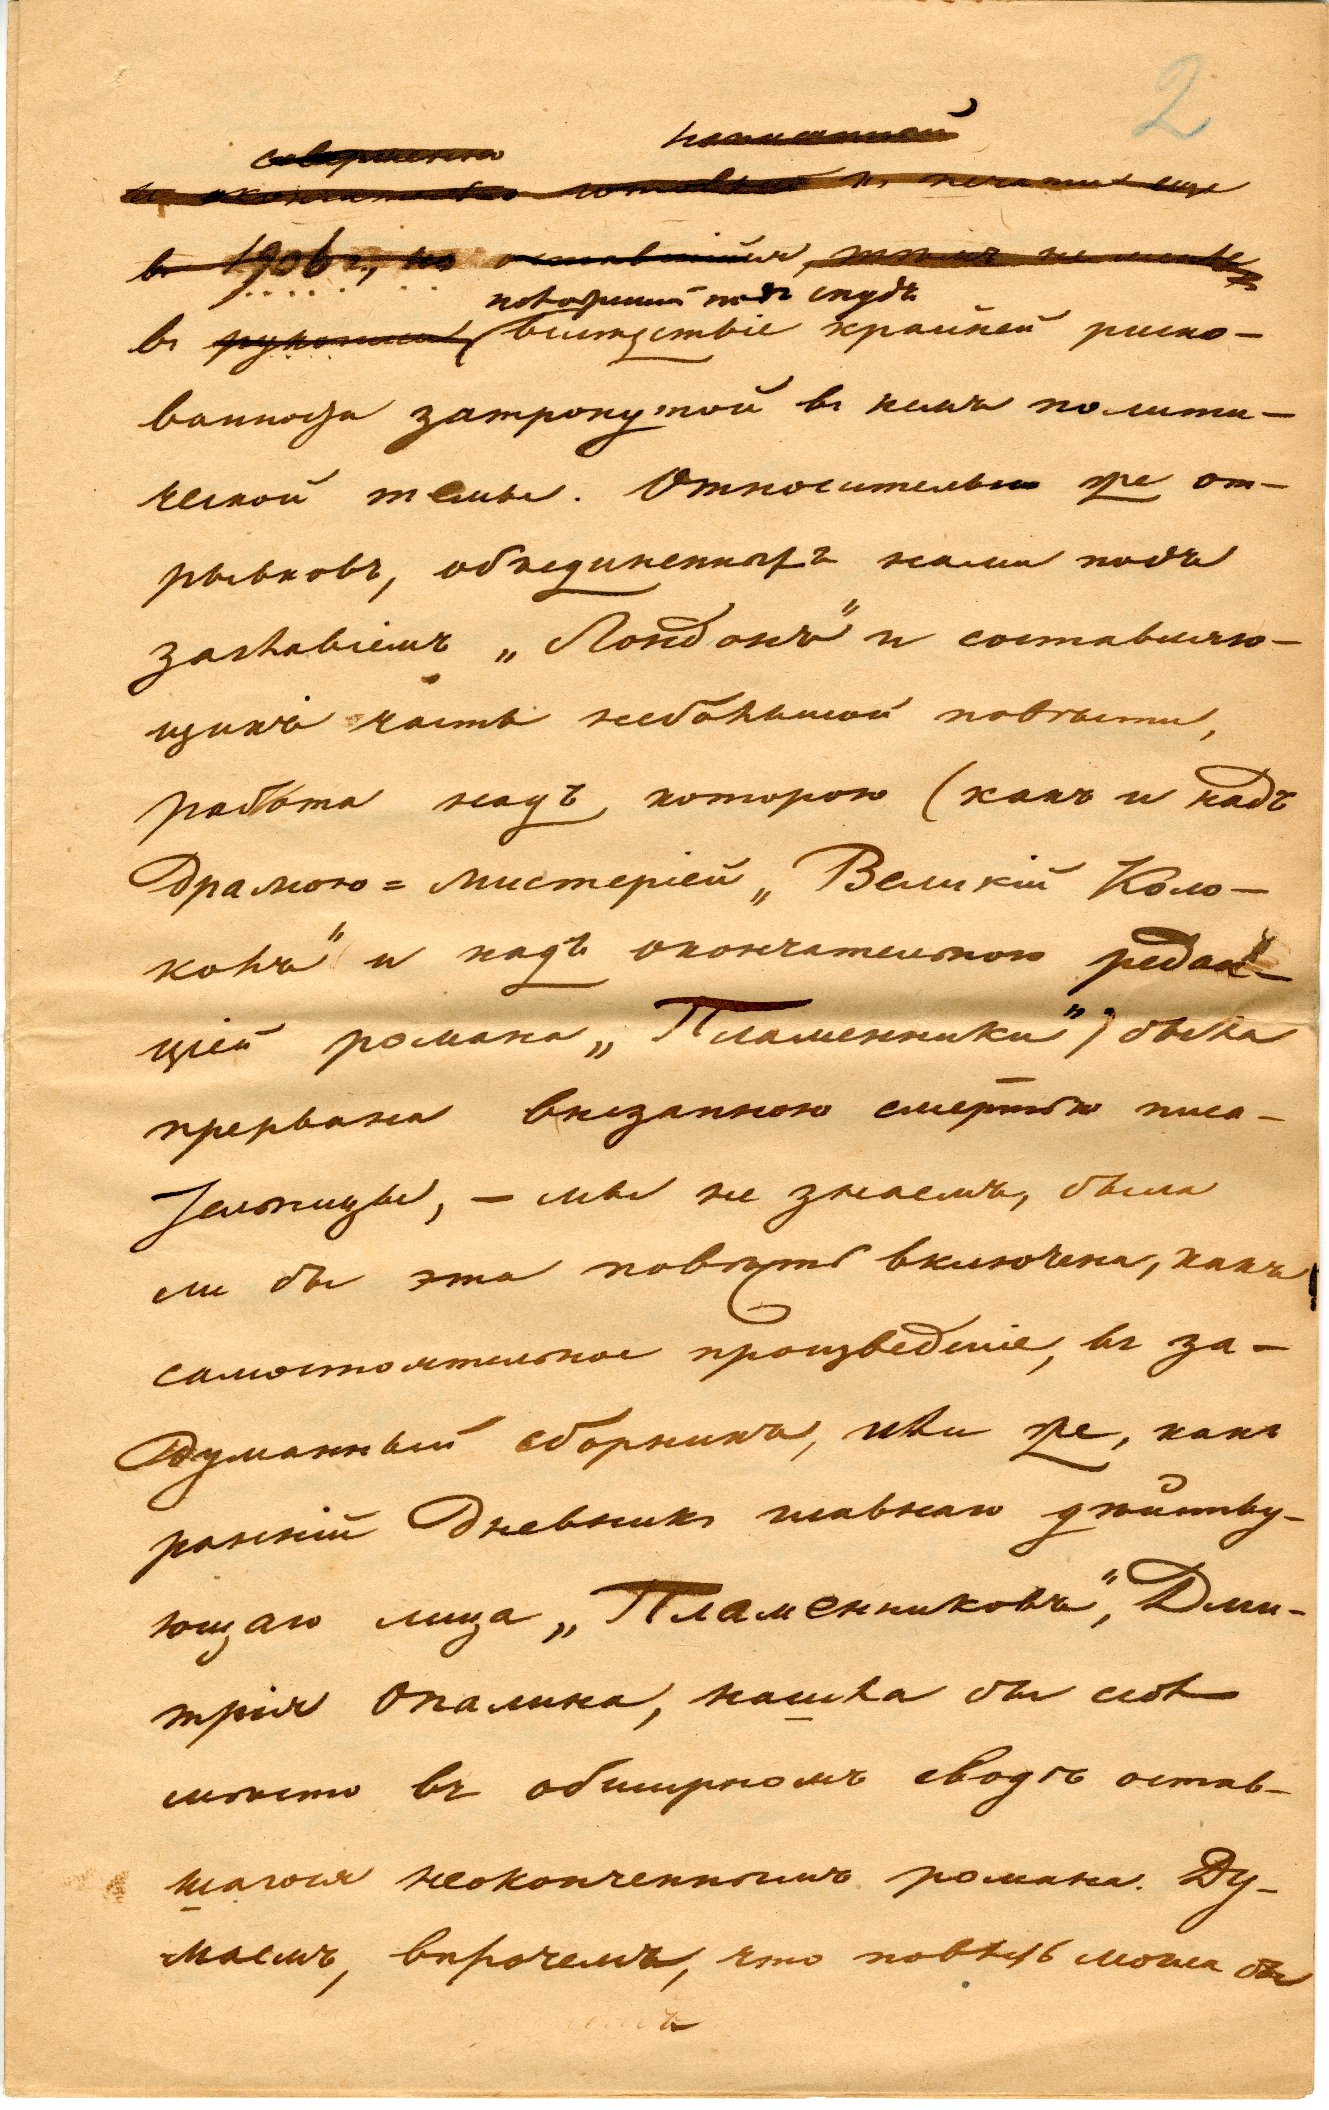 2
совершенно написанный
и окончательно готовый къ печати еще
въ 1906 г., но оставшійся, тѣмъ не менѣе,
подъ спудъ
въ рукописи, вслѣдствіе крайней риско-
ванности затронутой въ немъ полити-
ческой темы. Относительно же от-
рывковъ, объединенныхъ нами подъ
заглавіемъ „Лондонъ" и составляю-
щихъ часть небольшой повѣсти,
работа надъ которою (какъ и надъ
драмою=мистеріей „Великій Коло-
колъ" и надъ окончательною редак-
ціей романа „Пламенники") была
прервана внезапною смертью писа-
тельницы, — мы не знаемъ, была
ли бы эта повѣсть включена, какъ
самостоятельное произведеніе, въ за-
думанный сборникъ, или же, какъ
ранній дневникъ главнаго дѣйству-
ющаго лица „Пламенниковъ", Дми-
трія Опалина, нашла бы себѣ
мѣсто въ обширномъ сводѣ остав-
шагося неоконченнымъ романа. Ду-
маемъ, впрочемъ, что повѣсть могла бы